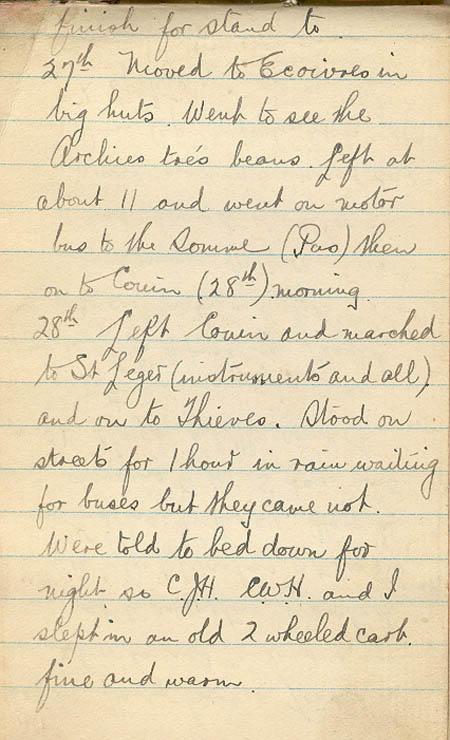 finish for stand to
27th Moved to Ecoivres in
big huts. Went to see the
Archies très beaus. Left at
about 11 and went on motor
bus to the Somme (Pas) then
on to Couin (28th) morning.
28th Left Couin and marched
to St Leger (instruments and all)
and on to Thieves. Stood on
streets for 1 hour in rain waiting
for buses but they came not.
Were told to bed down for
night so C.J.H. C.W.H. and I
slept in an old 2 wheeled cart.
fine and warm.